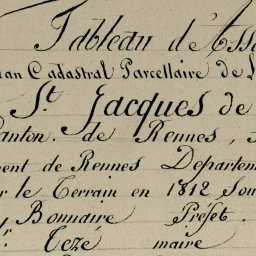 Tableau d'Ass
an Cadastral Parcellaire de L
St. Jacques de
Canton de Rennes,
ent de Rennes Departem
r le Terrain en 1812 Sou
Bonnaire Préfet.
r. Tezé maire